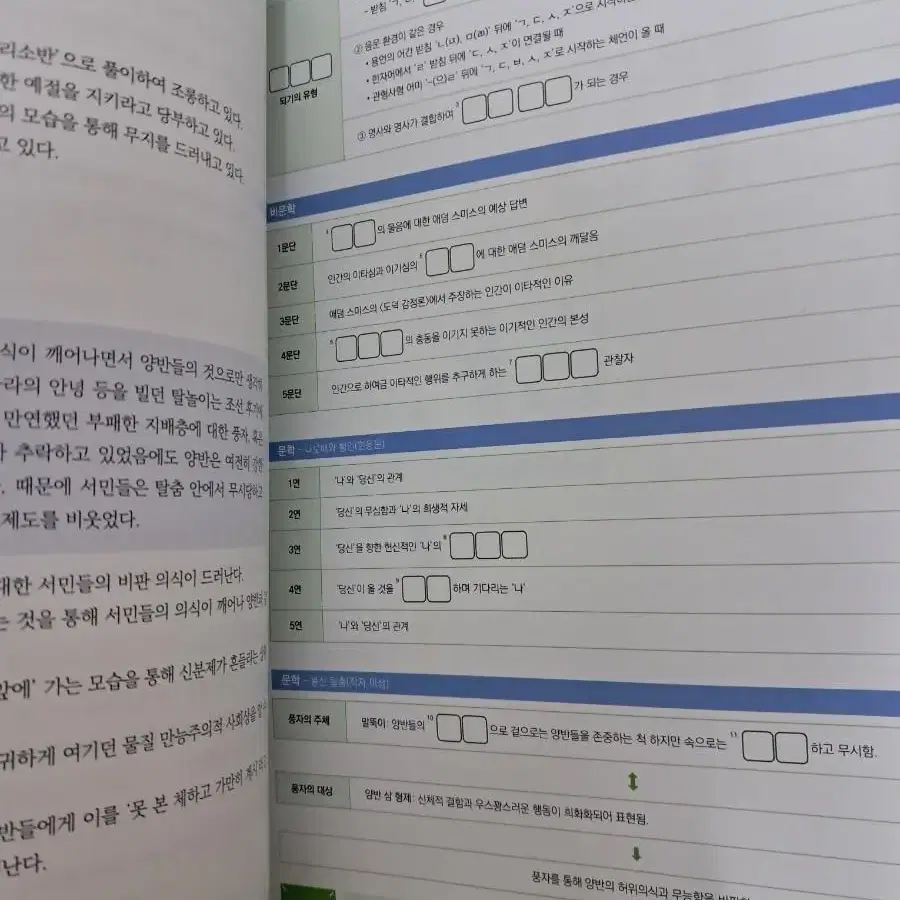 리소반'으로 풀이하여 조롱하고 있다.
한 예절을 지키라고 당부하고 있다.
의 모습을 통해 무지를 드러내고 있다.
고 있다.
식이 깨어나면서 양반들의 것으로만 생각
라의 안녕 등을 빌던 탈놀이는 조선 후기에
만연했던 부패한 지배층에 대한 풍자, 혹은
추락하고 있었음에도 양반은 여전히
때문에 서민들은 탈춤 안에서 무시당하고
제도를 비웃었다.
대한 서민들의 비판 의식이 드러난다.
는 것을 통해 서민들의 의식이 깨어나
앞에' 가는 모습을 통해 신분제가 흔들리는
귀하게 여기던 물질 만능주의적 사회상을
반들에게 이를 '못 본 체하고 가만히
난다.
- 받침 'ㄱ, ㄷ,
② 음운 환경이 같은 경우
• 용언의 어간 받침 'ㄴ(ㄵ), ㅁ(ㄻ)' 뒤에 'ㄱ, ㄷ, ㅅ, ㅈ'으로
• 한자어에서 'ㄹ' 받침 뒤에 'ㄷ, ㅅ, ㅈ'이 연결될 때
• 관형사형 어미 '-(으)ㄹ' 뒤에 'ㄱ, ㄷ, ㅂ, ㅅ, ㅈ'로 시작하는 체언이 올 때
되기의 유형
③ 명사와 명사가 결합하여 3 가 되는 경우
비문학
1문단 의 물음에 대한 애덤 스미스의 예상 답변
2문단 인간의 이타심과 이기심의 에 대한 애덤 스미스의 깨달음
3문단 애덤 스미스의 〈도덕 감정론〉에서 주장하는 인간이 이타적인 이유
4문단 6 의 충동을 이기지 못하는 이기적인 인간의 본성
5문단 인간으로 하여금 이타적인 행위를 추구하게 하는 7 관찰자
문학 - 나룻배와 행인(한용운)
1연 '나'와 '당신'의 관계
2연 '당신'의 무심함과 '나'의 희생적 자세
3연 '당신'을 향한 헌신적인 '나'의 8
4연 '당신'이 올 것을 9 하며 기다리는 '나'
5연 '나'와 '당신'의 관계
문학 - 봉산 탈춤(작자 미상)
풍자의 주체 말뚝이: 양반들의 10 으로 겉으로는 양반들을 존중하는 척 하지만 속으로는 11 하고 무시함.
풍자의 대상 양반 삼 형제: 신체적 결함과 우스꽝스러운 행동이 희화화되어 표현됨.
풍자를 통해 양반의 허위의식과 무능함을